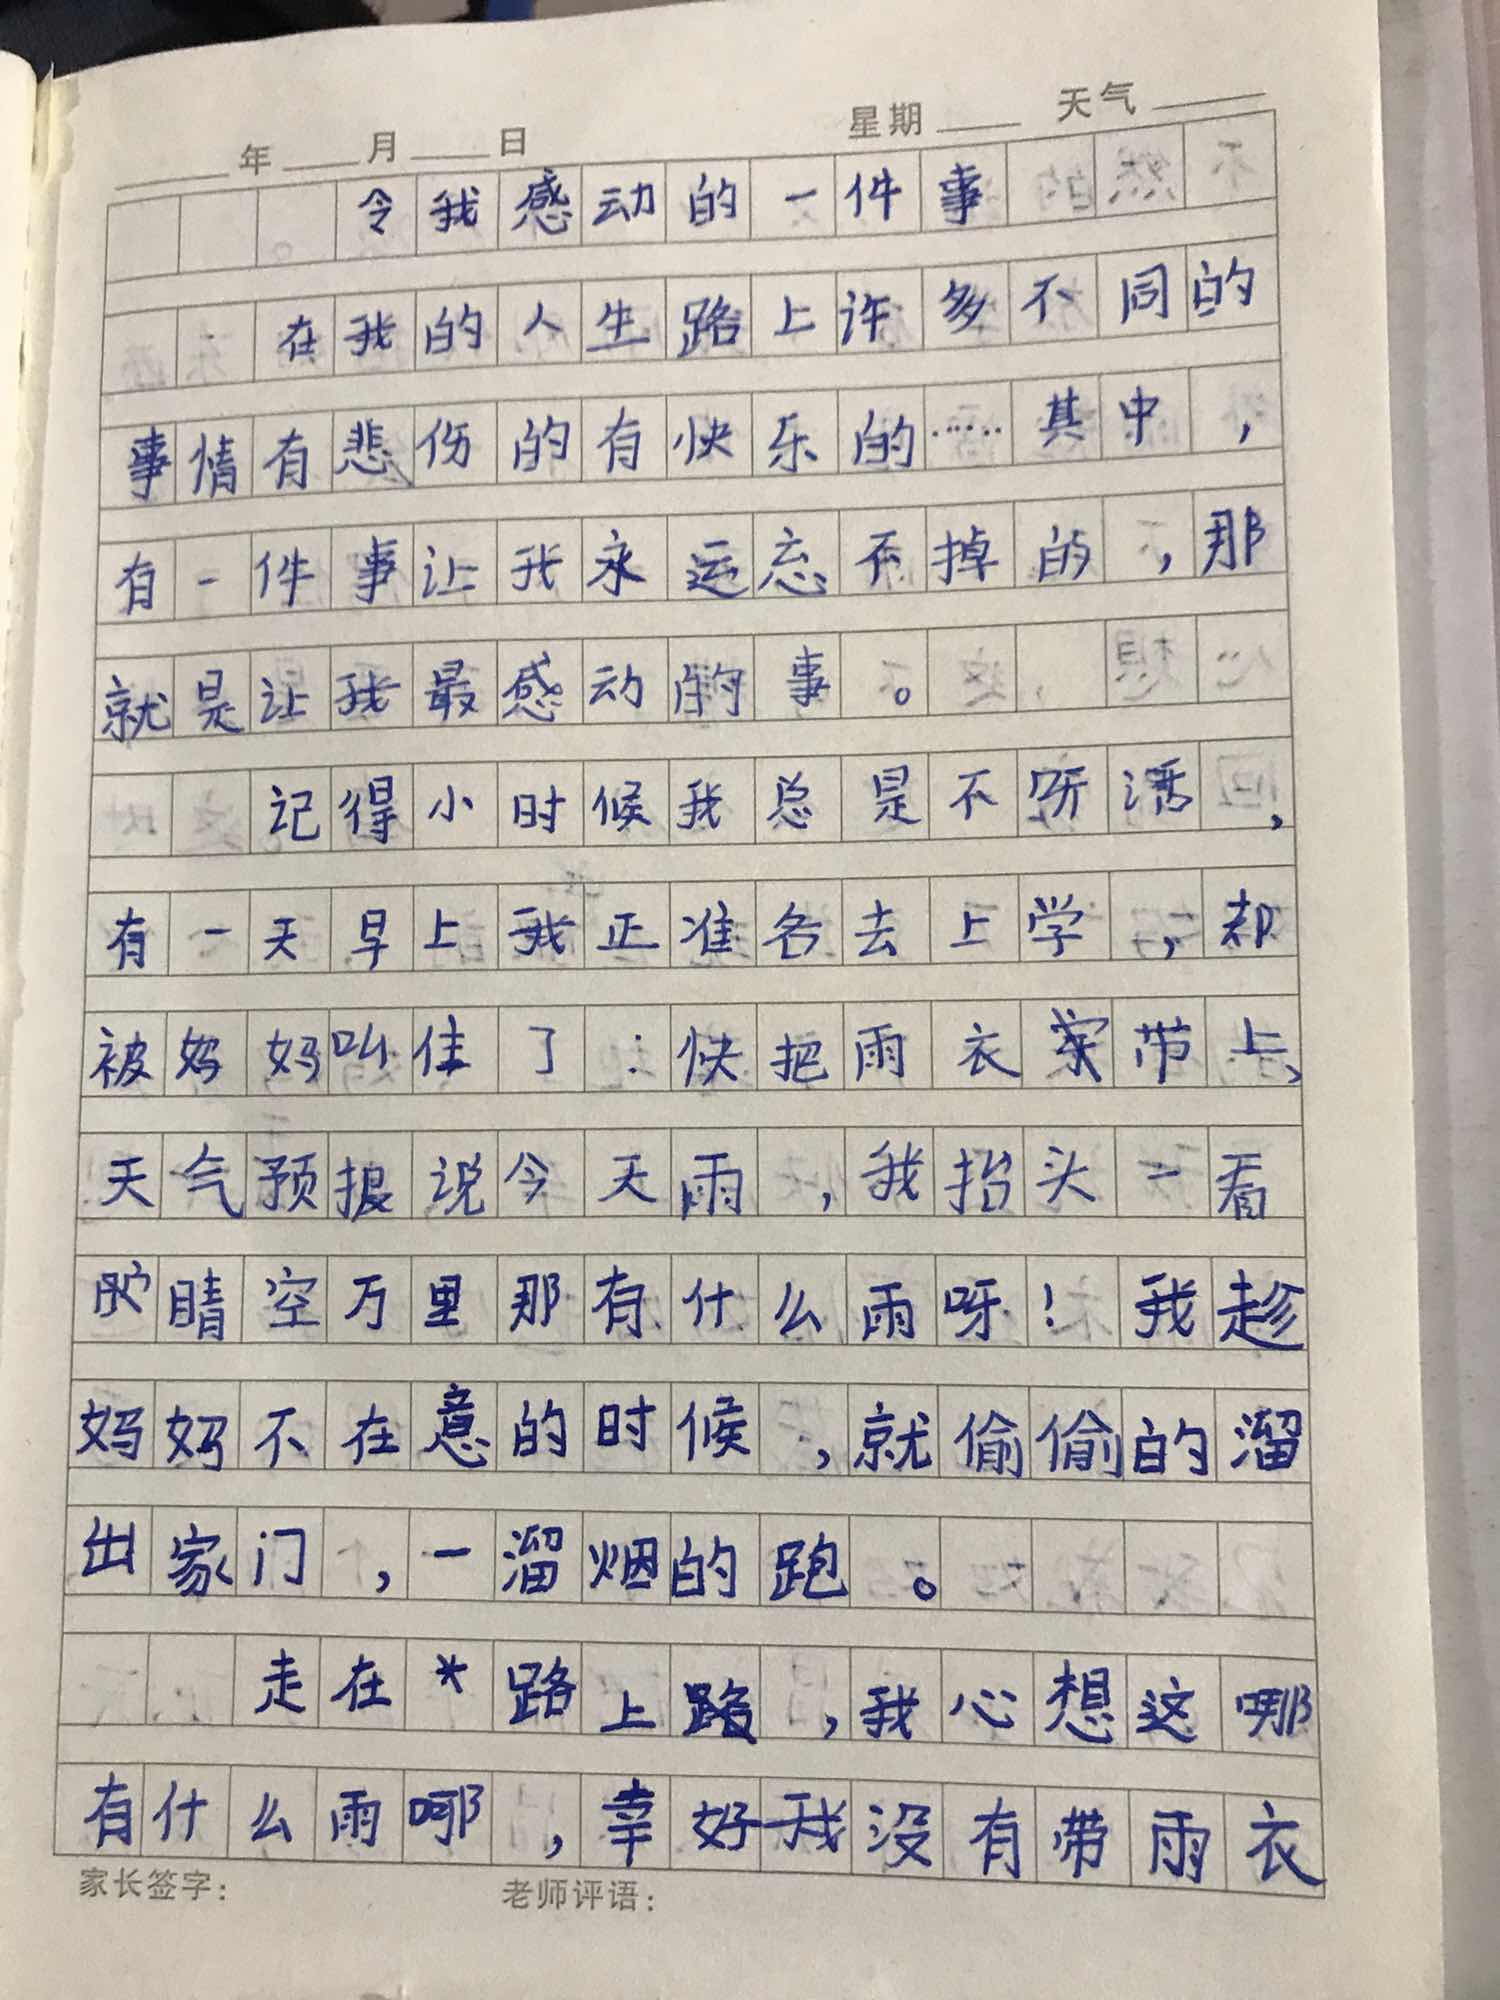 年 月 日 星期 天气
令我感动的一件事
在我的人生路上许多不同的
事情有悲伤的有快乐的……其中，
有一件事让我永远忘不掉的，那
就是让我最感动的事。
记得小时候我总是不听话，
有一天早上我正准备去上学，却
被妈妈叫住了：快把雨衣带上、
天气预报说今天雨，我抬头一看
晴空万里那有什么雨呀！我趁
妈妈不在意的时候，就偷偷的溜
出家门，一溜烟的跑。
走在*路上路，我心想这哪
有什么雨哪，幸好我没有带雨衣
家长签字： 老师评语：